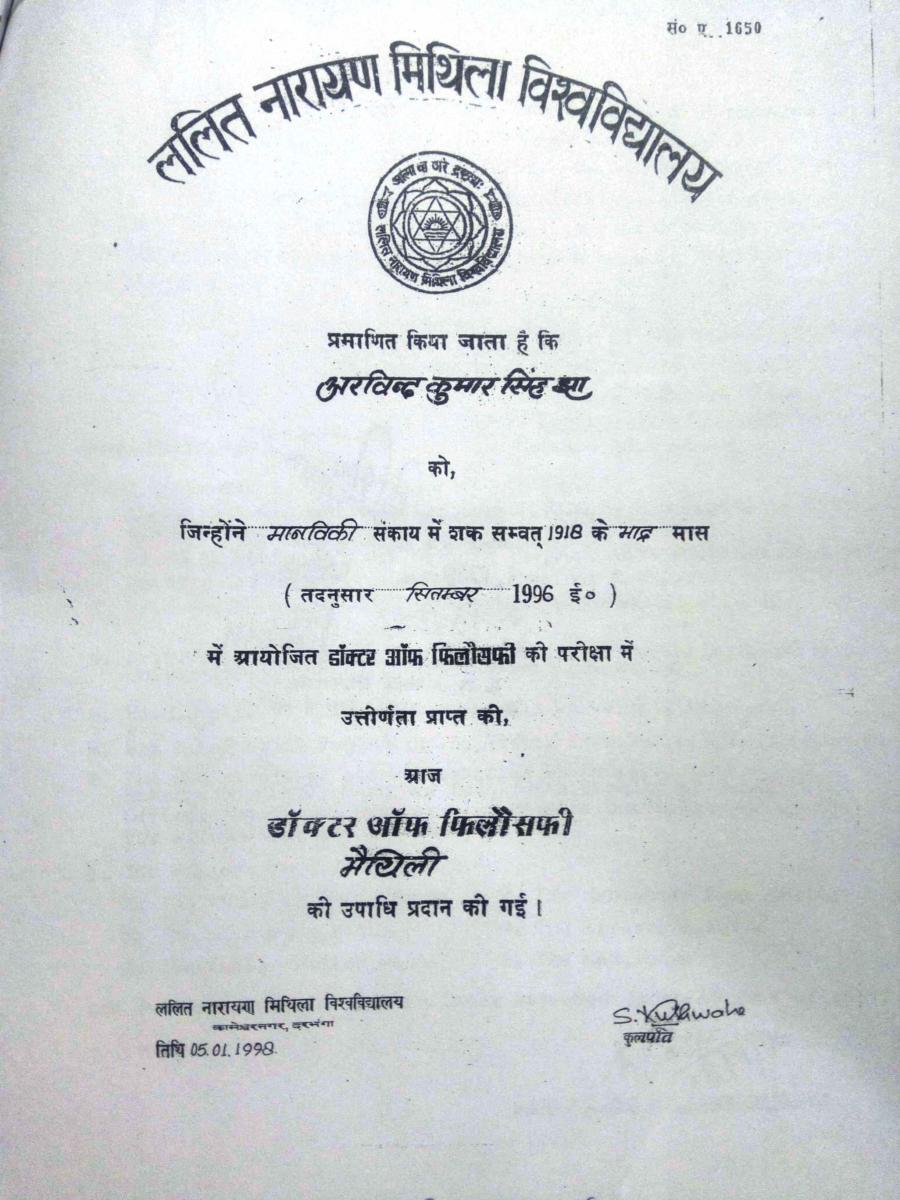 सं० ए 1650
ललित नारायण मिथिला विश्वविद्यालय
ललित नारायण मिथिला विश्वविद्यालय
प्रमाणित किया जाता है कि
अरविन्द कुमार सिंह झा
को,
जिन्होंने मानविकी संकाय में शक सम्वत् 1918 के भाद्र मास
( तदनुसार सितम्बर 1996 ई० )
में आयोजित डॉक्टर ऑफ फिलौसफी की परीक्षा में
उत्तीर्णता प्राप्त की,
आज
डॉक्टर ऑफ फिलौसफी
मैथिली
की उपाधि प्रदान की गई।
ललित नारायण मिथिला विश्वविद्यालय
कामेश्वरनगर, दरभंगा
तिथि 05.01.1998.
कुलपति